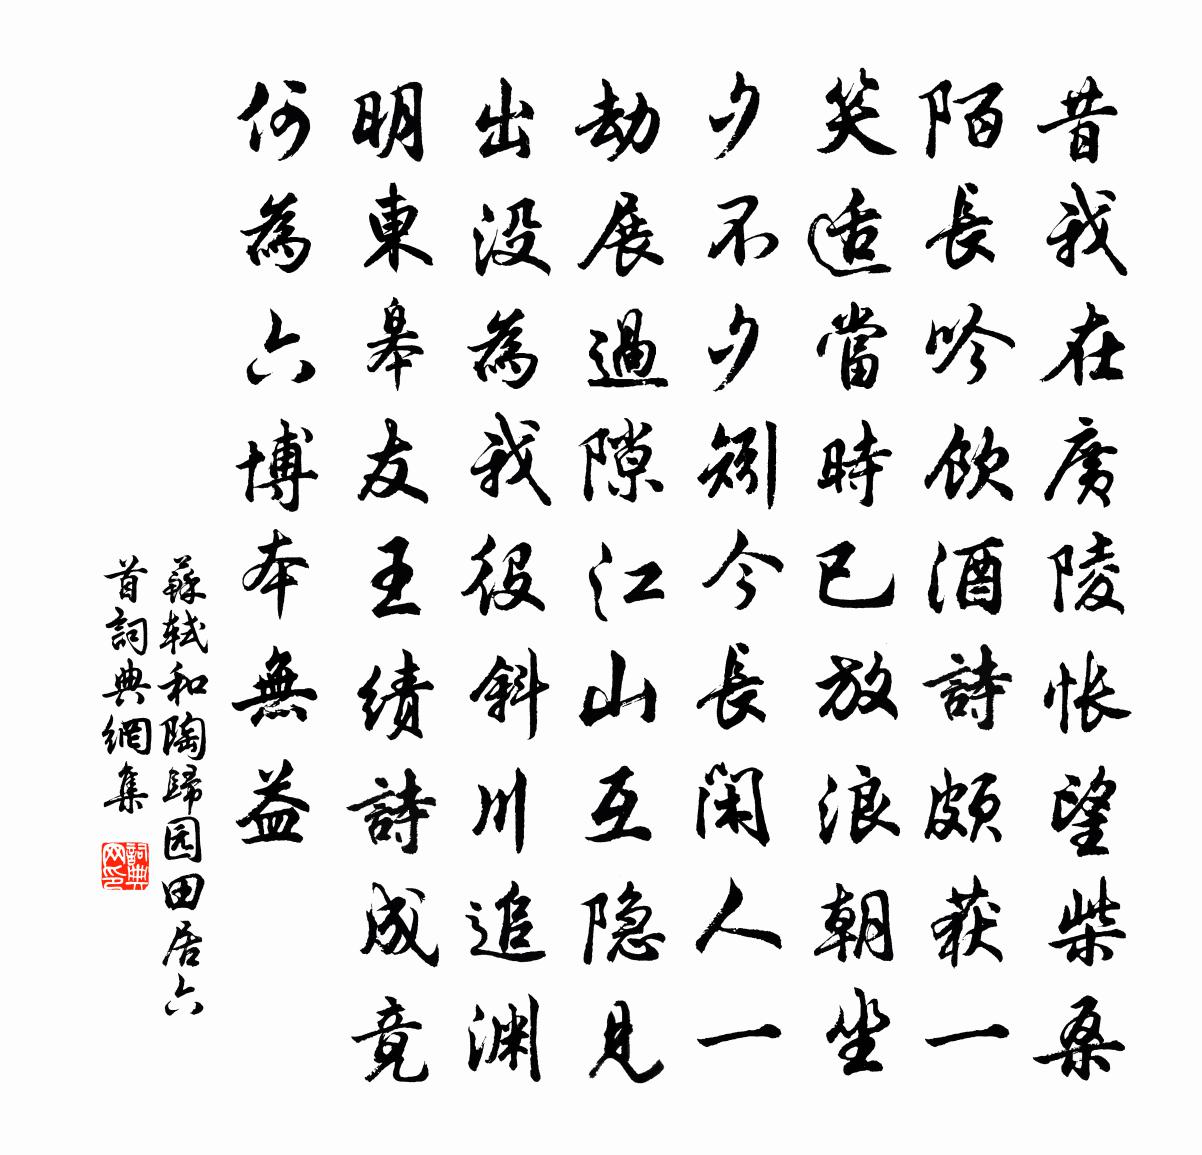 昔我在廣陵悵望柴桑
陌長吟飲酒詩頗获一
笑適當時已放浪朝坐
夕不夕矧今長閑人一
劫展過隙江山互隐見
出没為我役斜川追渊
明東皋友王績詩成竟
何為六博本無益
蘇軾和陶歸园田居六
首詞典網集
詞典网印